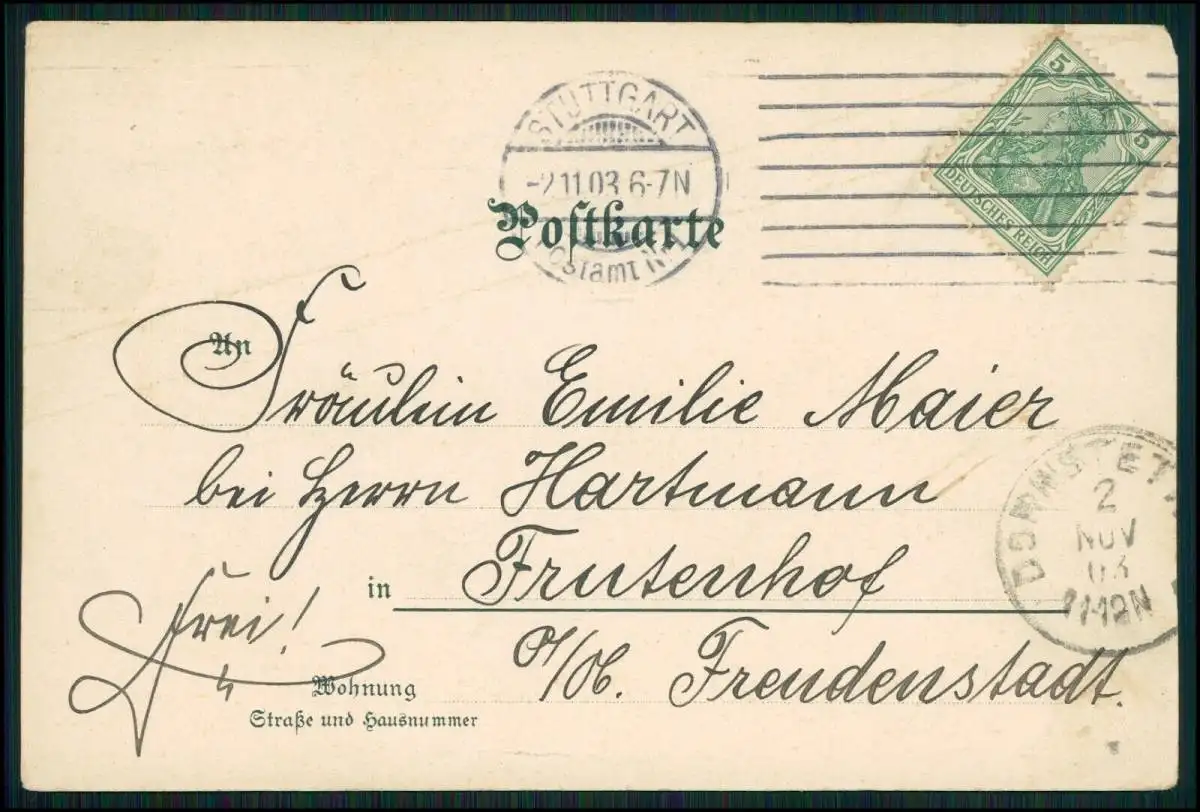 STUTTGART
-2.11.03.6-7N
Postamt Nr.
5
5
DEUTSCHES REICH
Postkarte
An
Fräulein Emilie Maier
bei Herrn Hartmann
in Frutenhof
O/Ob. Freudenstadt.
frei!
Wohnung
Straße und Hausnummer
DORNSTET
2
NOV
03
11-12N